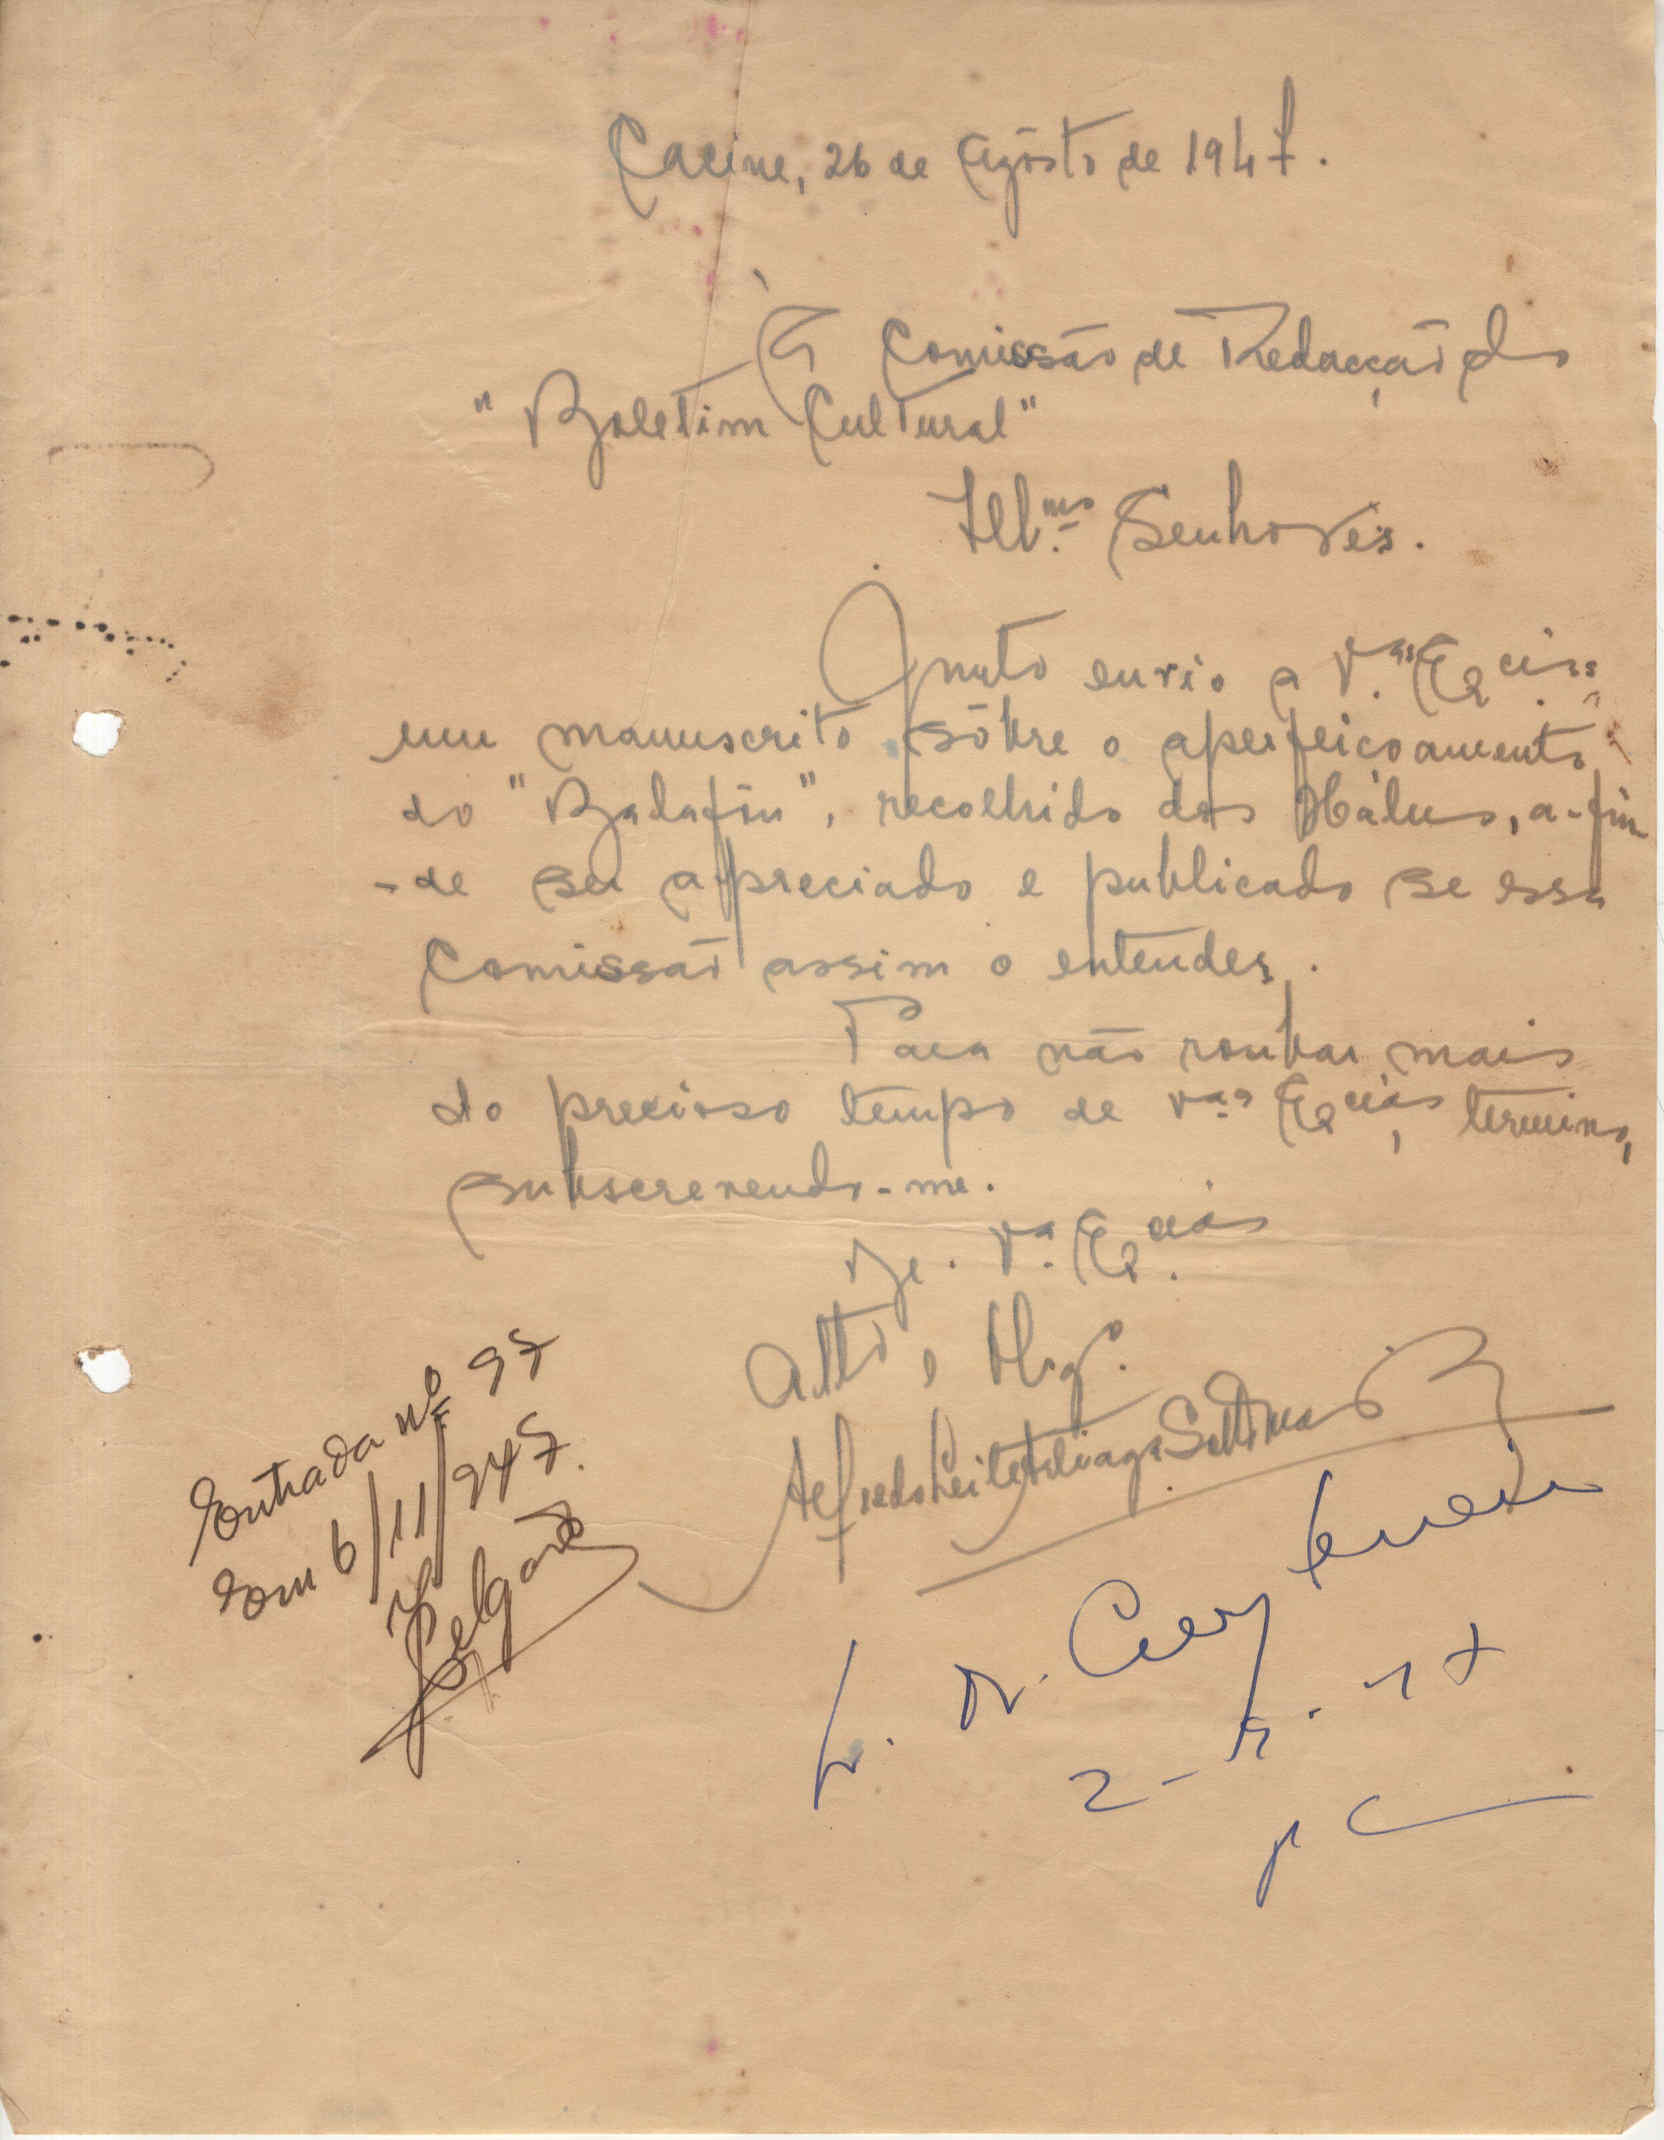 Cacine, 26 de Agôsto de 1947.
À Comissão de Redacção do
"Boletim Cultural"
Ill.mos Senhores.
Junto envio a V.as Ex.cias
um manuscrito sôbre o aperfeiçoamento
do "Balafón", recolhido dos Nálus, a-fim
-de ser apreciado e publicado se essa
Comissão assim o entender.
Para não roubar mais
do precioso tempo de V.as Ex.cias, termino,
subscrevendo-me.
De. V.a Ex.cias
Att.o e Obg.o
Alfredo Leite
Entrada nº 97
Em 6/11/947.
2-